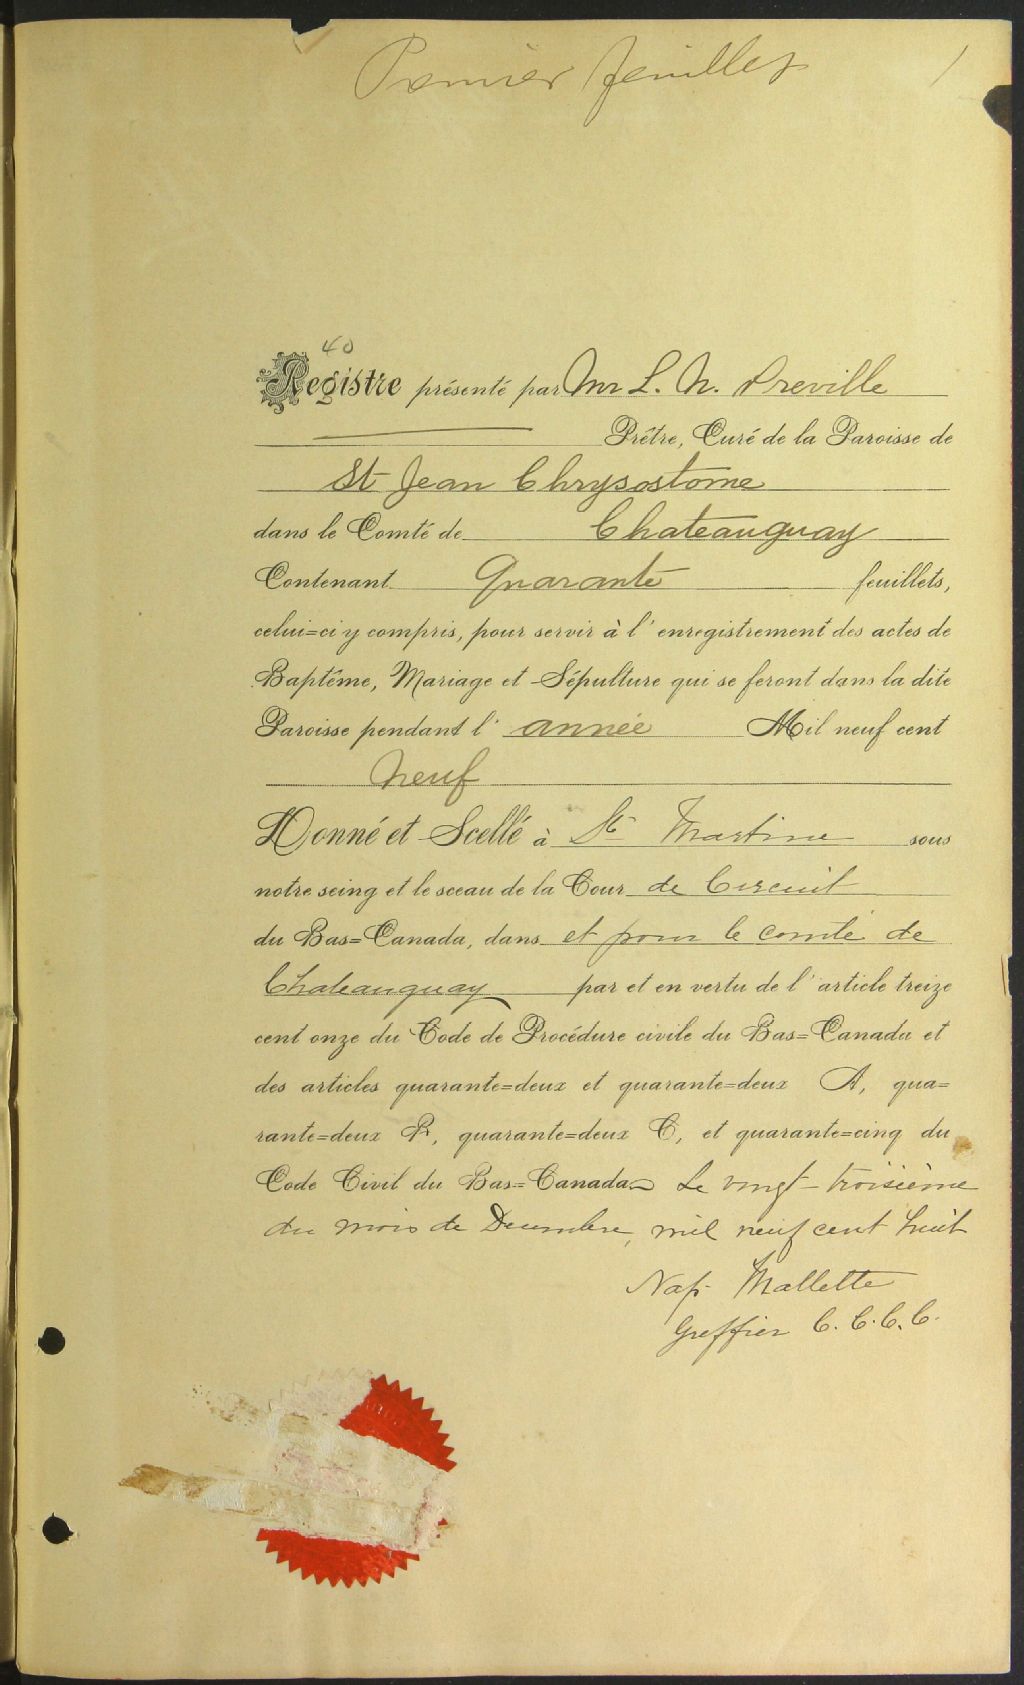 Premier feuillet 1
40
Registre présenté par Mr L. N. Preville
Prêtre, Curé de la Paroisse de
St Jean Chrysostome
dans le Comté de Chateauguay
Contenant Quarante feuillets,
celui=ci y compris, pour servir à l'enregistrement des actes de
Baptême, Mariage et Sépulture qui se feront dans la dite
Paroisse pendant l'année Mil neuf cent
neuf
Donné et Scellé à Ste Martine sous
notre seing et le sceau de la Cour de Circuit
du Bas=Canada, dans et pour le comté de
Chateauguay par et en vertu de l'article treize
cent onze du Code de Procédure civile du Bas=Canada et
des articles quarante=deux et quarante=deux A, qua=
rante=deux B, quarante=deux C, et quarante=cinq du
Code Civil du Bas=Canada Le vingt-troisième
du mois de Decembre, mil neuf cent huit
Nap. Mallette
Greffier C. C. C. C.